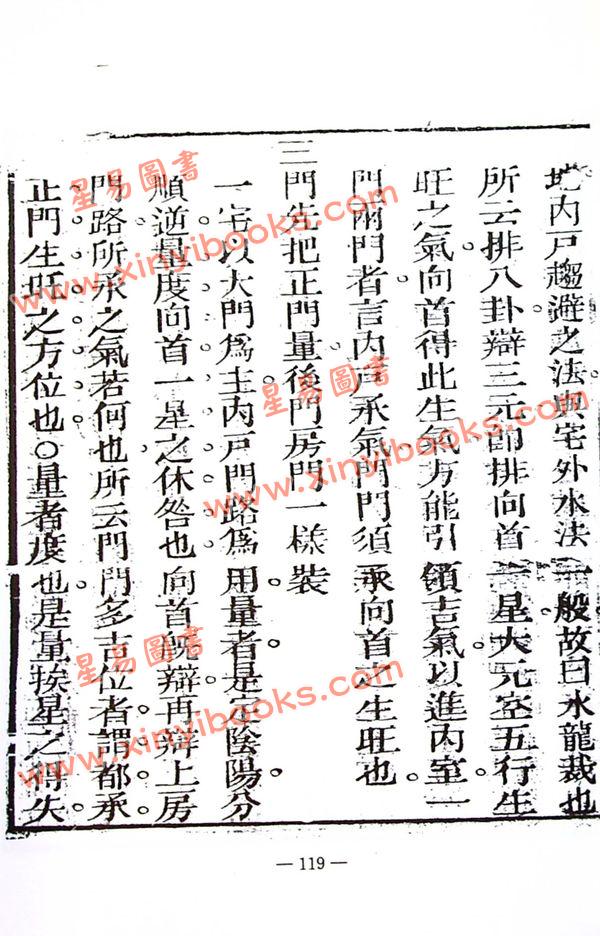 地內戶趨避之法與宅外水法一般故曰水龍裁也
所云排八卦辯三元卽排向首一星大元空五行生
旺之氣向首得此生氣方能引領吉氣以進內室一
門兩門者言內戶承氣門門須承向首之生旺也
三門先把正門量後門房門一樣裝
一宅以大門爲主內戶門路爲用量者是定陰陽分
順逆量度向首一星之休咎也向首旣辯再辯上房
門路所承之氣若何也所云門門多吉位者謂都承
正門生旺之方位也○量者度也是量挨星之得失
星易圖書
www.xinyibooks.com
星易圖書
www.xinyibooks.com
星易圖書
www.xinyibooks.com
星易圖書
www.xinyibooks.com
— 119 —